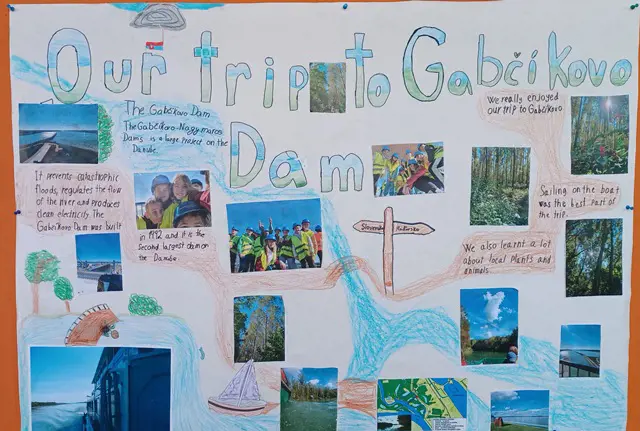 Our trip to Gabčíkovo
Dam
The Gabčíkovo Dam
The Gabčíkovo-Nagymaros
Dams is a large project on the
Danube.
It prevents catastrophic
floods, regulates the flow
of the river and produces
clean electricity. The
Gabčíkovo Dam was built
in 1992 and it is the
second largest dam on
the Danube.
We really enjoyed
our trip to Gabčíkovo
Sailing on the boat
was the best part of
the trip.
We also learnt a lot
about local plants and
animals.
Slovensko